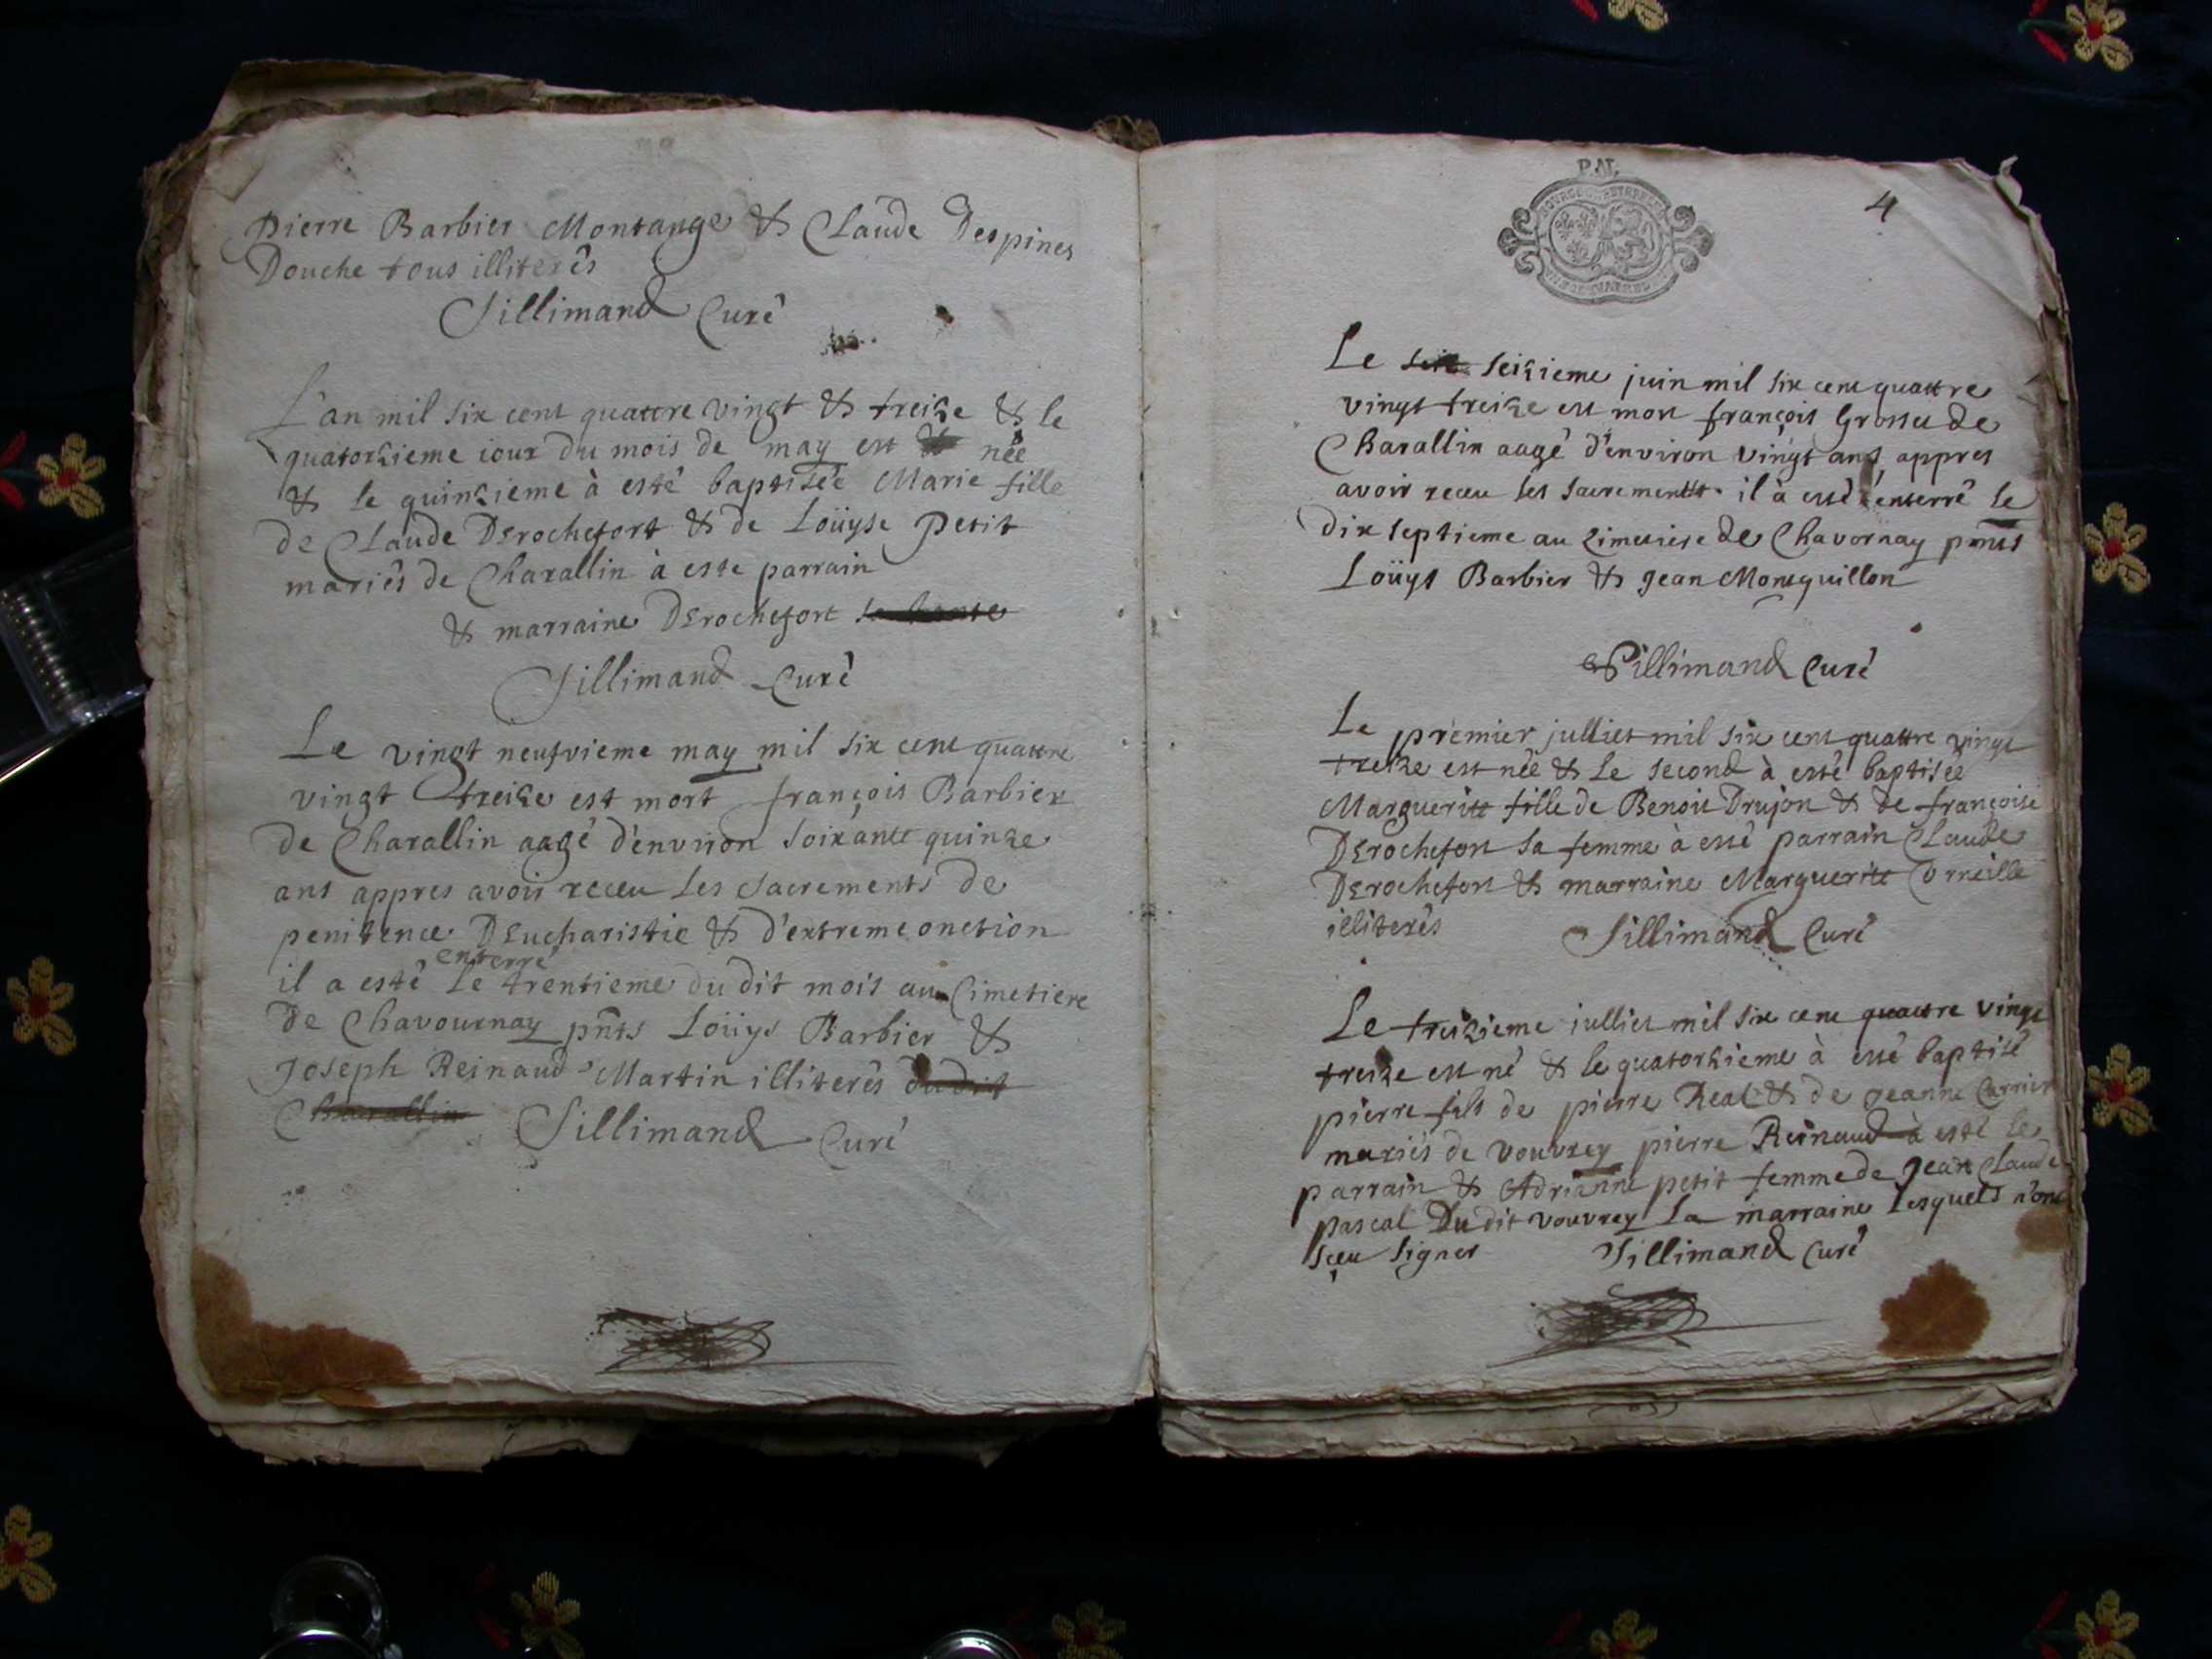 Pierre Barbier Montange & Claude Despines
Douche tous illiterês
Sillimand Curé
L'an mil six cent quattre vingt & treize & le
quatorzieme iour du mois de may est née
& le quinzieme à esté baptisée Marie fille
de Claude Derochefort & de Loüyse Petit
mariês de Charallin à este parrain
& marraine Derochefort
Sillimand Curé
Le vingt neufvieme may mil six cent quattre
vingt treize est mort françois Barbier
de Charallin aagé d'environ soixante quinze
ans appres avoir receu les sacrements de
penitence D'Eucharistie & d'extreme onction
enterré
il a esté le trentieme du dit mois au Cimetiere
de Chavournay pnts Loüys Barbier &
Joseph Reinaud Martin illiterês dudit
Charallin Sillimand Curé
P.AL
4
Le seizieme juin mil six cent quattre
vingt treize est mort françois Grosset de
Charallin aagé d'environ vingt ans appres
avoir receu les sacrements il à esté enterré le
dix septieme au Cimetiere de Chavornay pnts
Loüys Barbier & Jean Montguillon
Sillimand Curé
Le premier julliet mil six cent quattre vingt
treize est née & le second à esté baptisée
Marguerite fille de Benoit Drujon & de françoise
Derochefort sa femme à esté parrain Claude
Derochefort & marraine Marguerite
illiterês Sillimand Curé
Le treizieme julliet mil six cent quattre vingt
treize est né & le quatorzieme à esté baptisé
pierre fils de pierre Real & de Jeanne Carrier
mariés de Vouvrey pierre Reinaud à esté le
parrain & Adrianne petit femme de Jean Claude
pascal Du dit vouvrey la marraine lesquels n'ont
sçeu signer Sillimand Curé